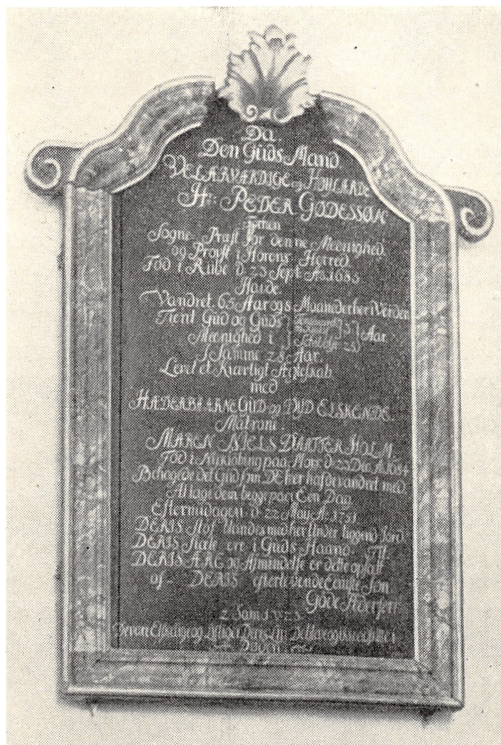 Da
Den Guds Mand
VELÆRVÆRDIGE og HØYLÆRDE
Hr. PEDER GØDESSØN
Sogne Præst for denne Meenighed
og Provst i Horens Herred
Fød i Ribe d. 23 Sept. Ao. 1685
Hafde
Vandret 65 Aar og 8 Maaneder her i Verden
Tient Gud og Guds
Meenighed i
3 Aar
25
I Samme 28 Aar
Levet et Kierligt Ægteskab
med
HÆDERBAARNE GUD og DYD ELSKENDE
Matrone
MAREN NIELS DAATTER HOLM
Fød i Nykiøbing paa Mors d. 23 Dec. A. 1684
Behagede det Gud som DE her hafde vandret med
At tage dem begge paa Een Dag
Eftermidagen d. 22 May A. 1751
DERIS Støf blandes med her under liggend Jord
DERIS Siæle ere i Guds Haand
DERIS ÆRE og Amindelse er dette opsatt
af DERIS efterlevende Søn
Gøde Pedersen
2 Sam: 1 V 23